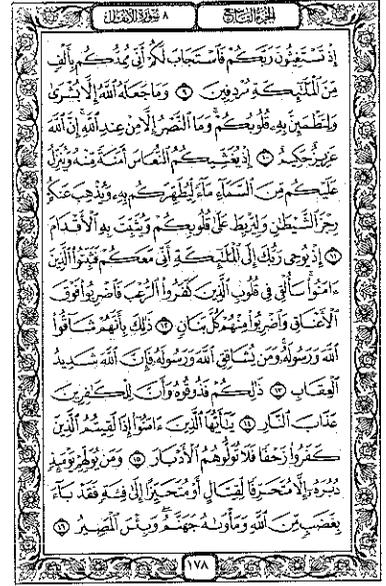 الجزء التاسع ٨ سورة الأنفال
إِذْ تَسْتَغِيثُونَ رَبَّكُمْ فَٱسْتَجَابَ لَكُمْ أَنِّى مُمِدُّكُم بِأَلْفٍ
مِّنَ ٱلْمَلَـٰٓئِكَةِ مُرْدِفِينَ ٩ وَمَا جَعَلَهُ ٱللَّهُ إِلَّا بُشْرَىٰ
وَلِتَطْمَئِنَّ بِهِۦ قُلُوبُكُمْ ۚ وَمَا ٱلنَّصْرُ إِلَّا مِنْ عِندِ ٱللَّهِ ۚ إِنَّ ٱللَّهَ
عَزِيزٌ حَكِيمٌ ١٠ إِذْ يُغَشِّيكُمُ ٱلنُّعَاسَ أَمَنَةً مِّنْهُ وَيُنَزِّلُ
عَلَيْكُم مِّنَ ٱلسَّمَآءِ مَآءً لِّيُطَهِّرَكُم بِهِۦ وَيُذْهِبَ عَنكُمْ
رِجْزَ ٱلشَّيْطَـٰنِ وَلِيَرْبِطَ عَلَىٰ قُلُوبِكُمْ وَيُثَبِّتَ بِهِ ٱلْأَقْدَامَ
١١ إِذْ يُوحِى رَبُّكَ إِلَى ٱلْمَلَـٰٓئِكَةِ أَنِّى مَعَكُمْ فَثَبِّتُوا۟ ٱلَّذِينَ
ءَامَنُوا۟ ۚ سَأُلْقِى فِى قُلُوبِ ٱلَّذِينَ كَفَرُوا۟ ٱلرُّعْبَ فَٱضْرِبُوا۟ فَوْقَ
ٱلْأَعْنَاقِ وَٱضْرِبُوا۟ مِنْهُمْ كُلَّ بَنَانٍ ١٢ ذَٰلِكَ بِأَنَّهُمْ شَآقُّوا۟
ٱللَّهَ وَرَسُولَهُۥ ۚ وَمَن يُشَاقِقِ ٱللَّهَ وَرَسُولَهُۥ فَإِنَّ ٱللَّهَ شَدِيدُ
ٱلْعِقَابِ ١٣ ذَٰلِكُمْ فَذُوقُوهُ وَأَنَّ لِلْكَـٰفِرِينَ
عَذَابَ ٱلنَّارِ ١٤ يَـٰٓأَيُّهَا ٱلَّذِينَ ءَامَنُوٓا۟ إِذَا لَقِيتُمُ ٱلَّذِينَ
كَفَرُوا۟ زَحْفًا فَلَا تُوَلُّوهُمُ ٱلْأَدْبَارَ ١٥ وَمَن يُوَلِّهِمْ يَوْمَئِذٍ
دُبُرَهُۥٓ إِلَّا مُتَحَرِّفًا لِّقِتَالٍ أَوْ مُتَحَيِّزًا إِلَىٰ فِئَةٍ فَقَدْ بَآءَ
بِغَضَبٍ مِّنَ ٱللَّهِ وَمَأْوَىٰهُ جَهَنَّمُ ۖ وَبِئْسَ ٱلْمَصِيرُ ١٦
١٧٨